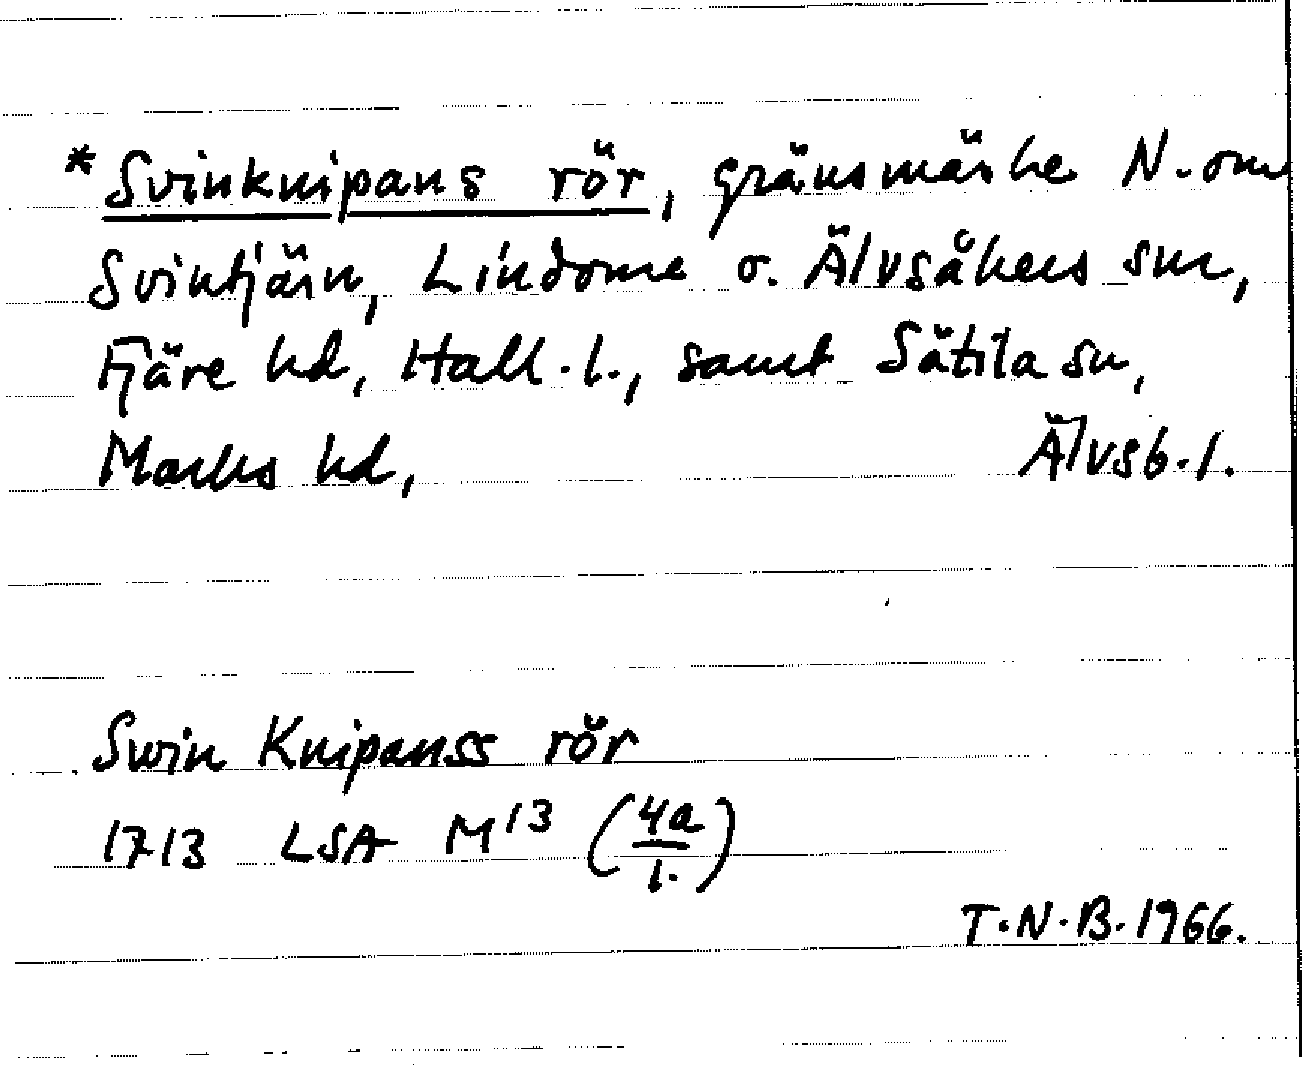 *Svinknipans rör, gränsmärke N. om
Svintjärn, Lindome o. Älvsåkers snr,
Fjäre hd, Hall. l., samt Sätila sn,
Marks hd, Älvsb. l.
Swin Knipanss rör
1713 LSA M 13 (4a/1.)
T.N.B. 1966.